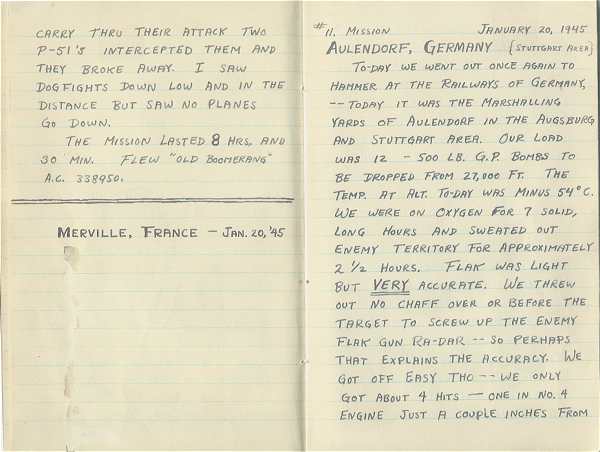 CARRY THRU THEIR ATTACK TWO
P-51'S INTERCEPTED THEM AND
THEY BROKE AWAY. I SAW
DOGFIGHTS DOWN LOW AND IN THE
DISTANCE BUT SAW NO PLANES
GO DOWN.
THE MISSION LASTED 8 HRS. AND
30 MIN. FLEW "OLD BOOMERANG"
A.C. 338950.
MERVILLE, FRANCE - JAN. 20, '45
#11. MISSION JANUARY 20, 1945
AULENDORF, GERMANY {STUTTGART AREA}
TO-DAY WE WENT OUT ONCE AGAIN TO
HAMMER AT THE RAILWAYS OF GERMANY,
-- TODAY IT WAS THE MARSHALLING
YARDS OF AULENDORF IN THE AUGSBURG
AND STUTTGART AREA. OUR LOAD
WAS 12 - 500 LB. G.P. BOMBS TO
BE DROPPED FROM 27,000 FT. THE
TEMP. AT ALT. TO-DAY WAS MINUS 54°C.
WE WERE ON OXYGEN FOR 7 SOLID,
LONG HOURS AND SWEATED OUT
ENEMY TERRITORY FOR APPROXIMATELY
2 1/2 HOURS. FLAK WAS LIGHT
BUT VERY ACCURATE. WE THREW
OUT NO CHAFF OVER OR BEFORE THE
TARGET TO SCREW UP THE ENEMY
FLAK GUN RA-DAR -- SO PERHAPS
THAT EXPLAINS THE ACCURACY. WE
GOT OFF EASY THO -- WE ONLY
GOT ABOUT 4 HITS - ONE IN NO. 4
ENGINE JUST A COUPLE INCHES FROM